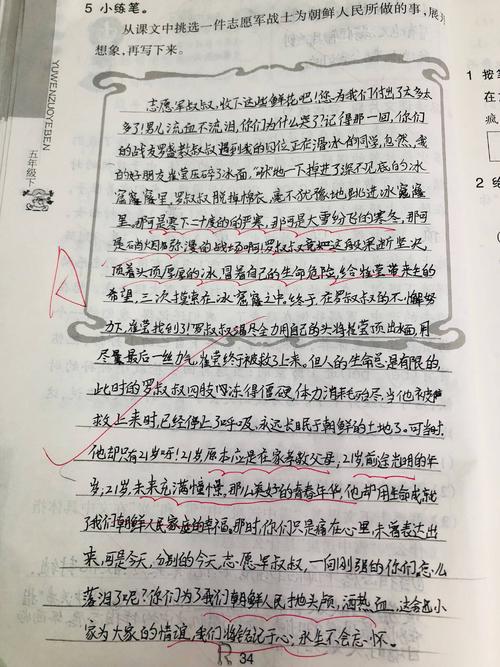 5 小练笔。
从课文中挑选一件志愿军战士为朝鲜人民所做的事,展
想象,再写下来。
YUWENZUOYEBEN
五年级下
志愿军叔叔,收下这些鲜花吧!您为我们付出了太多太
多了!男儿流血不流泪,你们为什么哭了?记得那一回,你们
的战友罗盛教叔叔遇到我的四位正在溜冰的同学,忽然,我
的好朋友崔莹压碎了冰面,一下掉进了深不见底的冰
窟窿里,罗叔叔脱掉棉衣,毫不犹豫地跳进冰窟窿
里,那可是零下二十度的严寒,那可是大雪纷飞的寒冬,那可
是硝烟弥漫的战场啊!罗叔叔竟如这般果断坚决,
顶着头顶厚厚的冰,冒着自己的生命危险,给崔莹带来生的
希望,三次摸索在冰窟窿之中,终于在罗叔叔的不懈努
力下,崔莹找到了!罗叔叔竭尽全力用自己的头将崔莹顶出水面,用
尽最后一丝力气,崔莹终于被救了上来。但人的生命总是有限的,
此时的罗叔叔四肢冻得僵硬,体力消耗殆尽,当他被
救上来时,已经停止了呼吸,永远长眠于朝鲜的土地了。可当时
他却只有21岁呀!21岁,原本应是在家孝敬父母,21岁,前途光明的年
岁,21岁,未来充满憧憬,那么美好的青春年华,他却用生命成就
了我们朝鲜人民家庭的幸福。那时,你们只是痛在心里,未曾表达出
来,可是今天,分别的今天,志愿军叔叔,一向刚强的你们,怎么
落泪了呢?你们为了我们朝鲜人民抛头颅,洒热血,这舍小
家为大家的情谊,我们将铭记于心,永生不会忘怀。
34
1 按
2